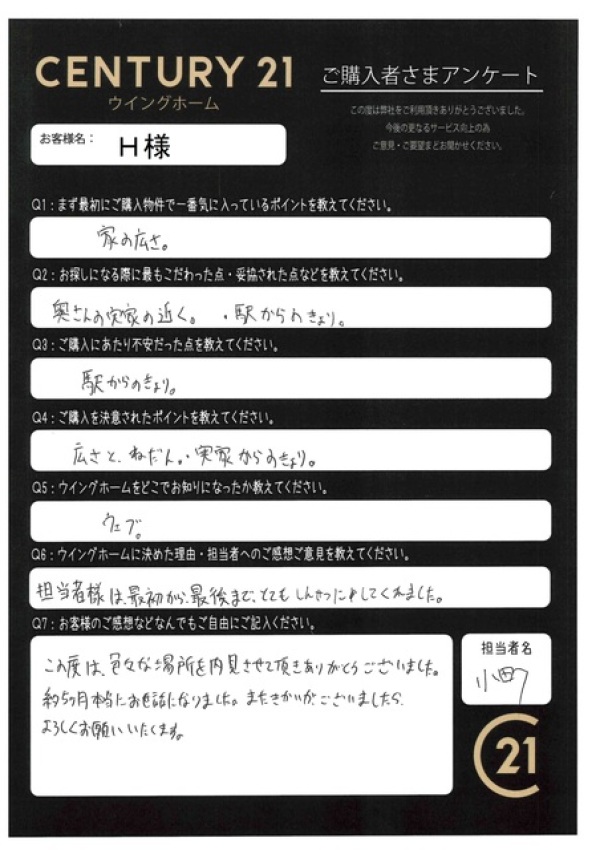 CENTURY 21
ウイングホーム
ご購入者さまアンケート
この度は弊社をご利用頂きありがとうございました。
今後の更なるサービス向上の為
ご意見・ご要望をお聞かせください。
お客様名： H様
Q1：まず最初にご購入物件で一番気に入っているポイントを教えてください。
家の広さ。
Q2：お探しになる際に最もこだわった点・妥協された点などを教えてください。
奥さんの実家の近く。・駅からのきょり。
Q3：ご購入にあたり不安だった点を教えてください。
駅からのきょり。
Q4：ご購入を決意されたポイントを教えてください。
広さと、ねだん。・実家からのきょり。
Q5：ウイングホームをどこでお知りになったか教えてください。
ウェブ。
Q6：ウイングホームに決めた理由・担当者へのご感想ご意見を教えてください。
担当者様は、最初から、最後まで、とてもしんせつにしてくれました。
Q7：お客様のご感想などなんでもご自由にご記入ください。
この度は、色々な場所を内見させて頂きありがとうございました。
約5ヶ月本当にお世話になりました。またきかいがございましたら、
よろしくお願いいたします。
担当者名
小田
C21